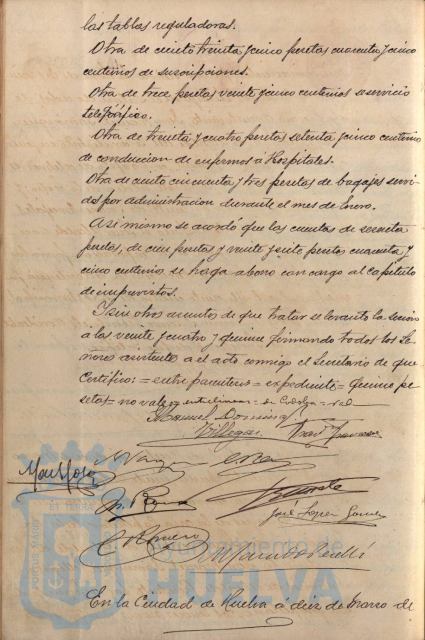 las tablas reguladoras.
Otra de ciento treinta y cinco pesetas cuarenta y cinco
centimos de suscripciones.
Otra de trece pesetas veinte y cinco centimos servicio
telefónico.
Otra de treinta y cuatro pesetas setenta y cinco centimos
de conduccion de enfermos a Hospitales.
Otra de ciento cincuenta y tres pesetas de bagajes servi-
dos por administracion durante el mes de Enero.
Asi mismo se acordó que las cuentas de sesenta
pesetas, de cien pesetas y veinte y siete pesetas cuarenta y
cinco centimos se haga abono con cargo al Capitulo
de imprevistos.
Y sin otros asuntos de que tratar se levanto la sesion
á las veinte y cuatro y quince firmando todos los Se-
ñores asistentes a el acto conmigo el Secretario de que
Certifico: = entre parentesis = expediente = quince pe-
setas = no vale y entrelineas = = vale
Manuel Dominguez
Villegas
José Lopez Gomez
Romero
Ayuntamiento de
HUELVA
PORTUS MARIS
ET TERRÆ
En la Ciudad de Huelva á diez de Marzo de